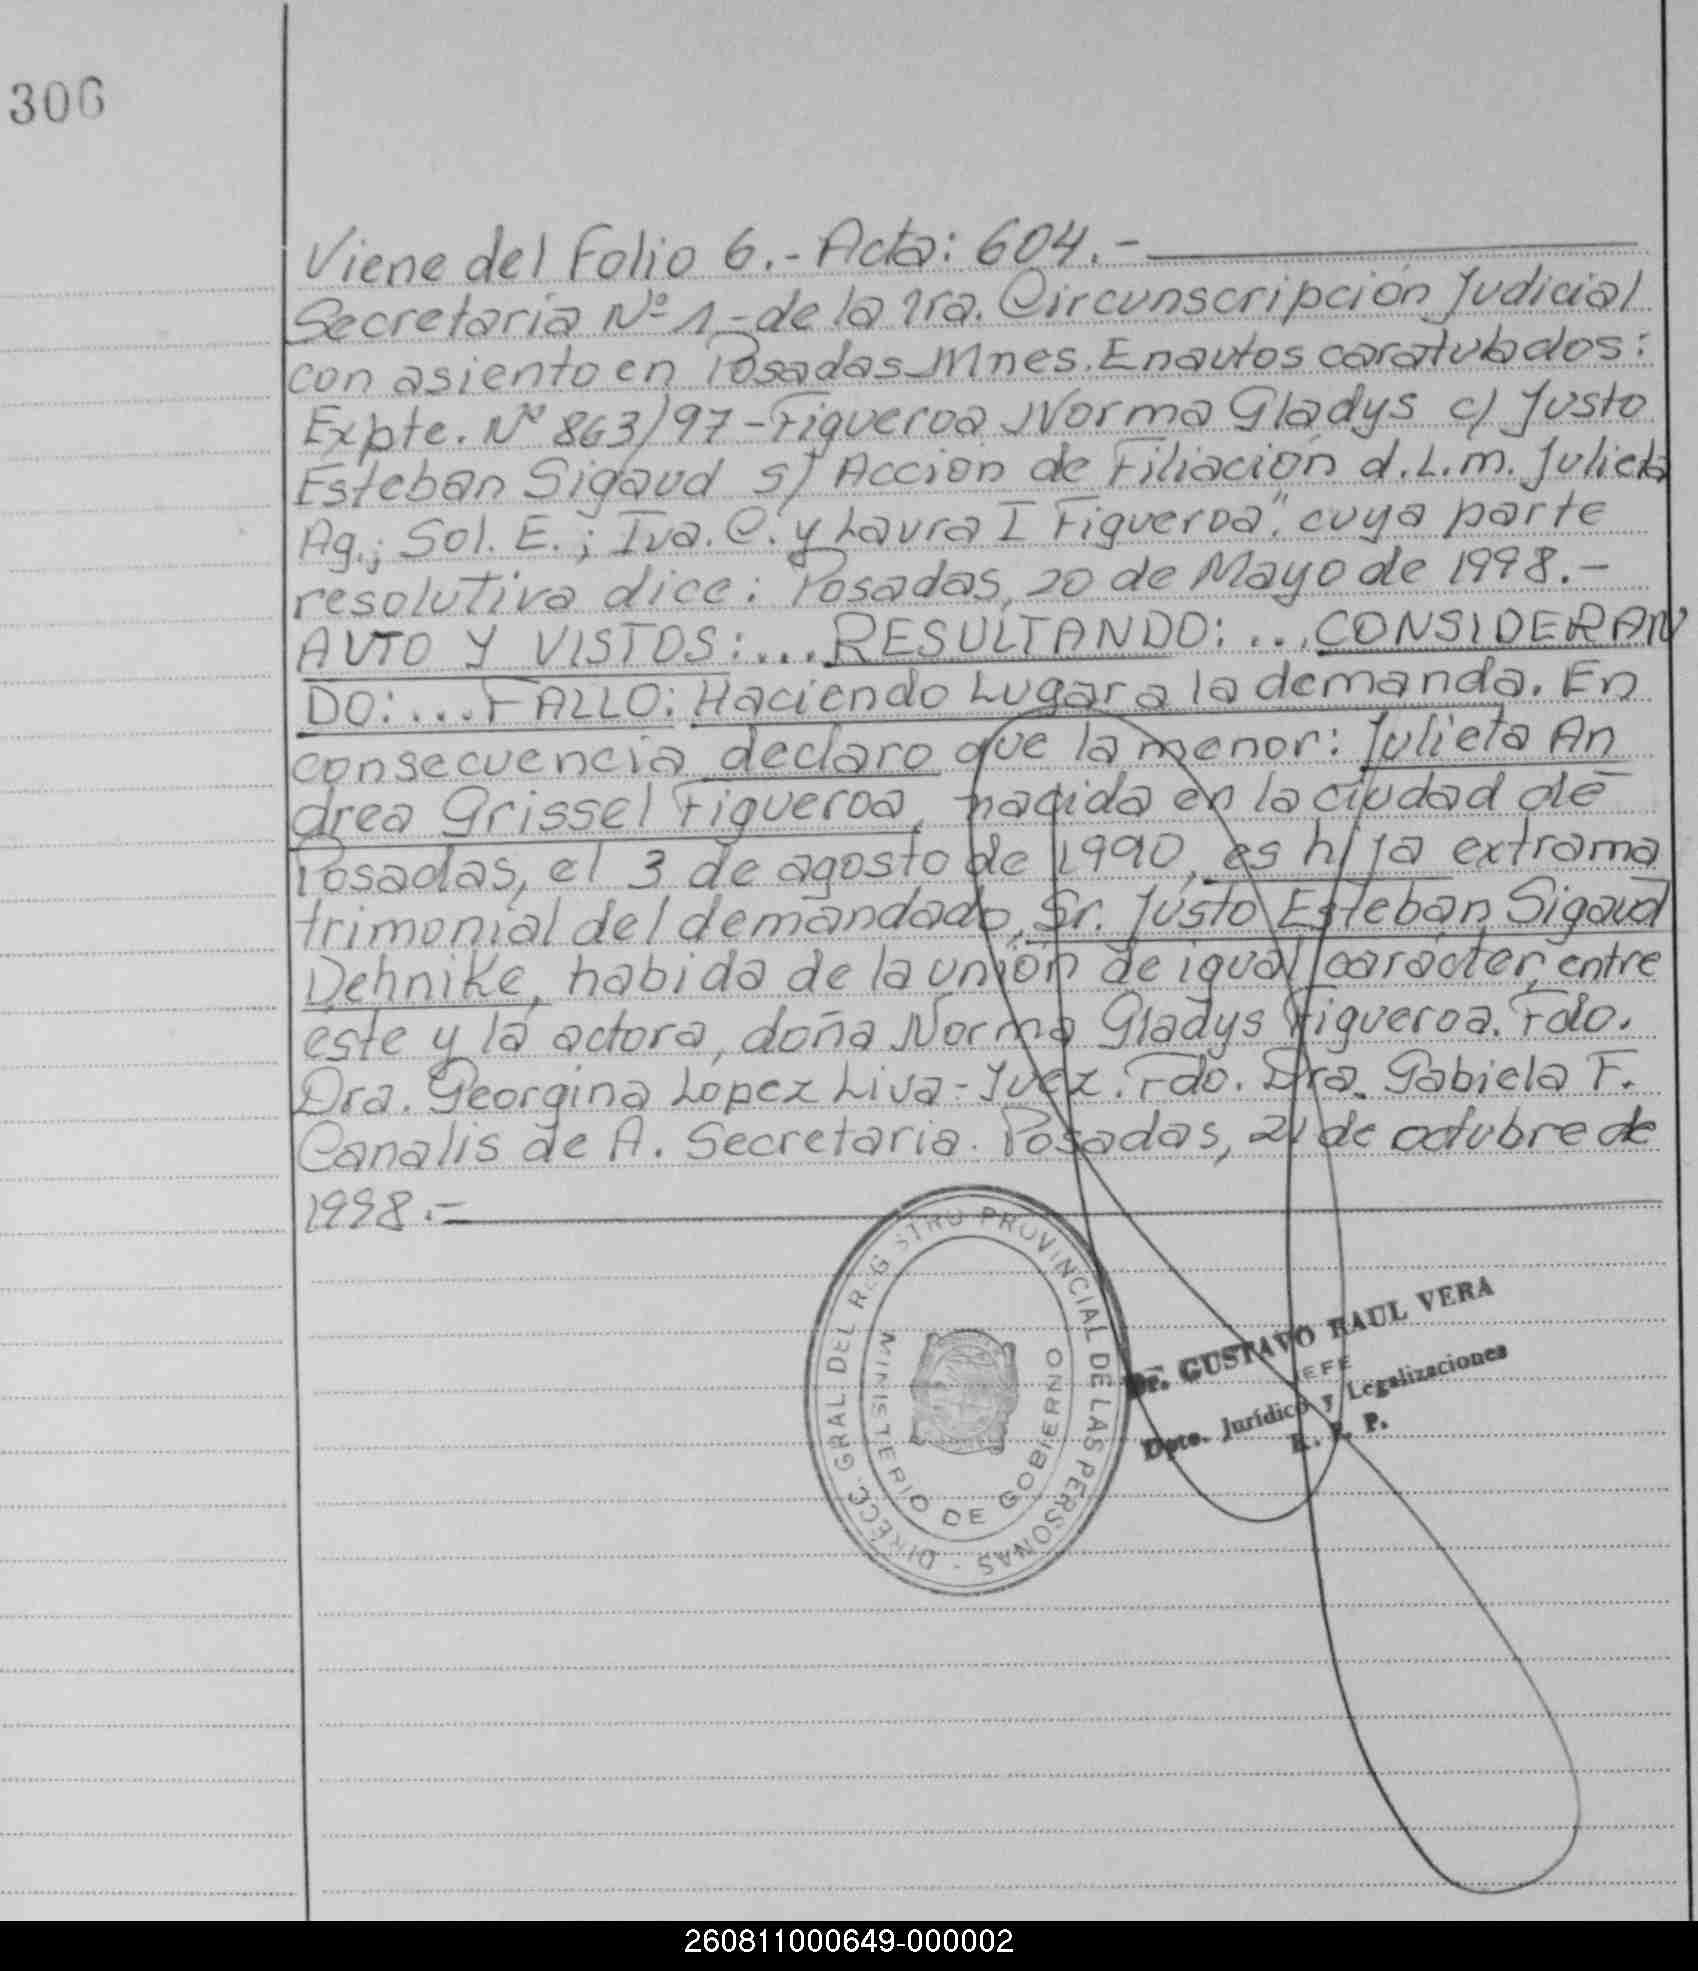 306
Viene del Folio 6.- Acta: 604.-
Secretaria Nº 1 - de la 1ra. Circunscripción Judicial
con asiento en Posadas Mnes. En autos caratulados:
Expte. Nº 863/97 - Figueroa Norma Gladys c/ Justo
Esteban Sigaud s/ Acción de Filiación d.L.m. Julieta
Ag.; Sol. E.; Iva. C. y Laura I Figueroa". cuya parte
resolutiva dice: Posadas, 20 de Mayo de 1998.-
AUTO Y VISTOS:... RESULTANDO:... CONSIDERAN
DO:... FALLO: Haciendo Lugar a la demanda. En
consecuencia declaro que la menor: Julieta An
drea Grissel Figueroa, nacida en la ciudad de
Posadas, el 3 de agosto de 1990, es hija extrama
trimonial del demandado, Sr. Justo Esteban Sigaud
Dehnike, habida de la unión de igual carácter, entre
este y la actora, doña Norma Gladys Figueroa. Fdo.
Dra. Georgina Lopez Liva - Juez. Fdo. Dra. Gabiela F.
Canalis de A. Secretaria. Posadas, 21 de octubre de
1998.-
DIRECC. GRAL DEL REGISTRO PROVINCIAL DE LAS PERSONAS -
MINISTERIO DE GOBIERNO
Dr. GUSTAVO RAUL VERA
JEFE
Dpto. Jurídico y Legalizaciones
R. P. P.
260811000649-000002